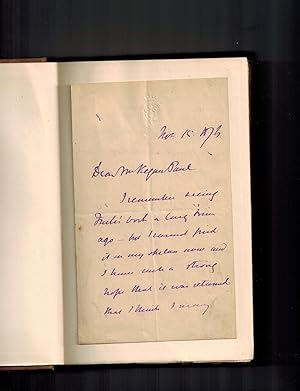 Nov. 15. 1876
Dear Mr Kegan Paul
I remember seeing
book a long time
ago – but I cannot find
it in my shelves now and
I have such a strong
hope that it was returned
that I think I may